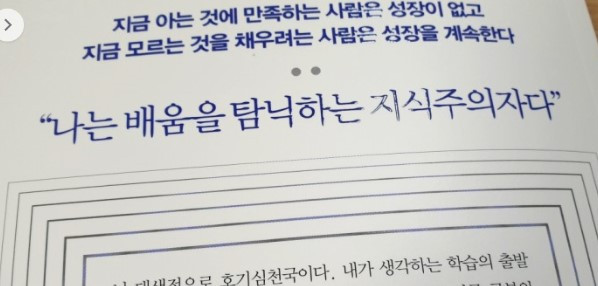 지금 아는 것에 만족하는 사람은 성장이 없고
지금 모르는 것을 채우려는 사람은 성장을 계속한다
“나는 배움을 탐닉하는 지식주의자다”
태생적으로 호기심천국이다. 내가 생각하는 학습의 출발